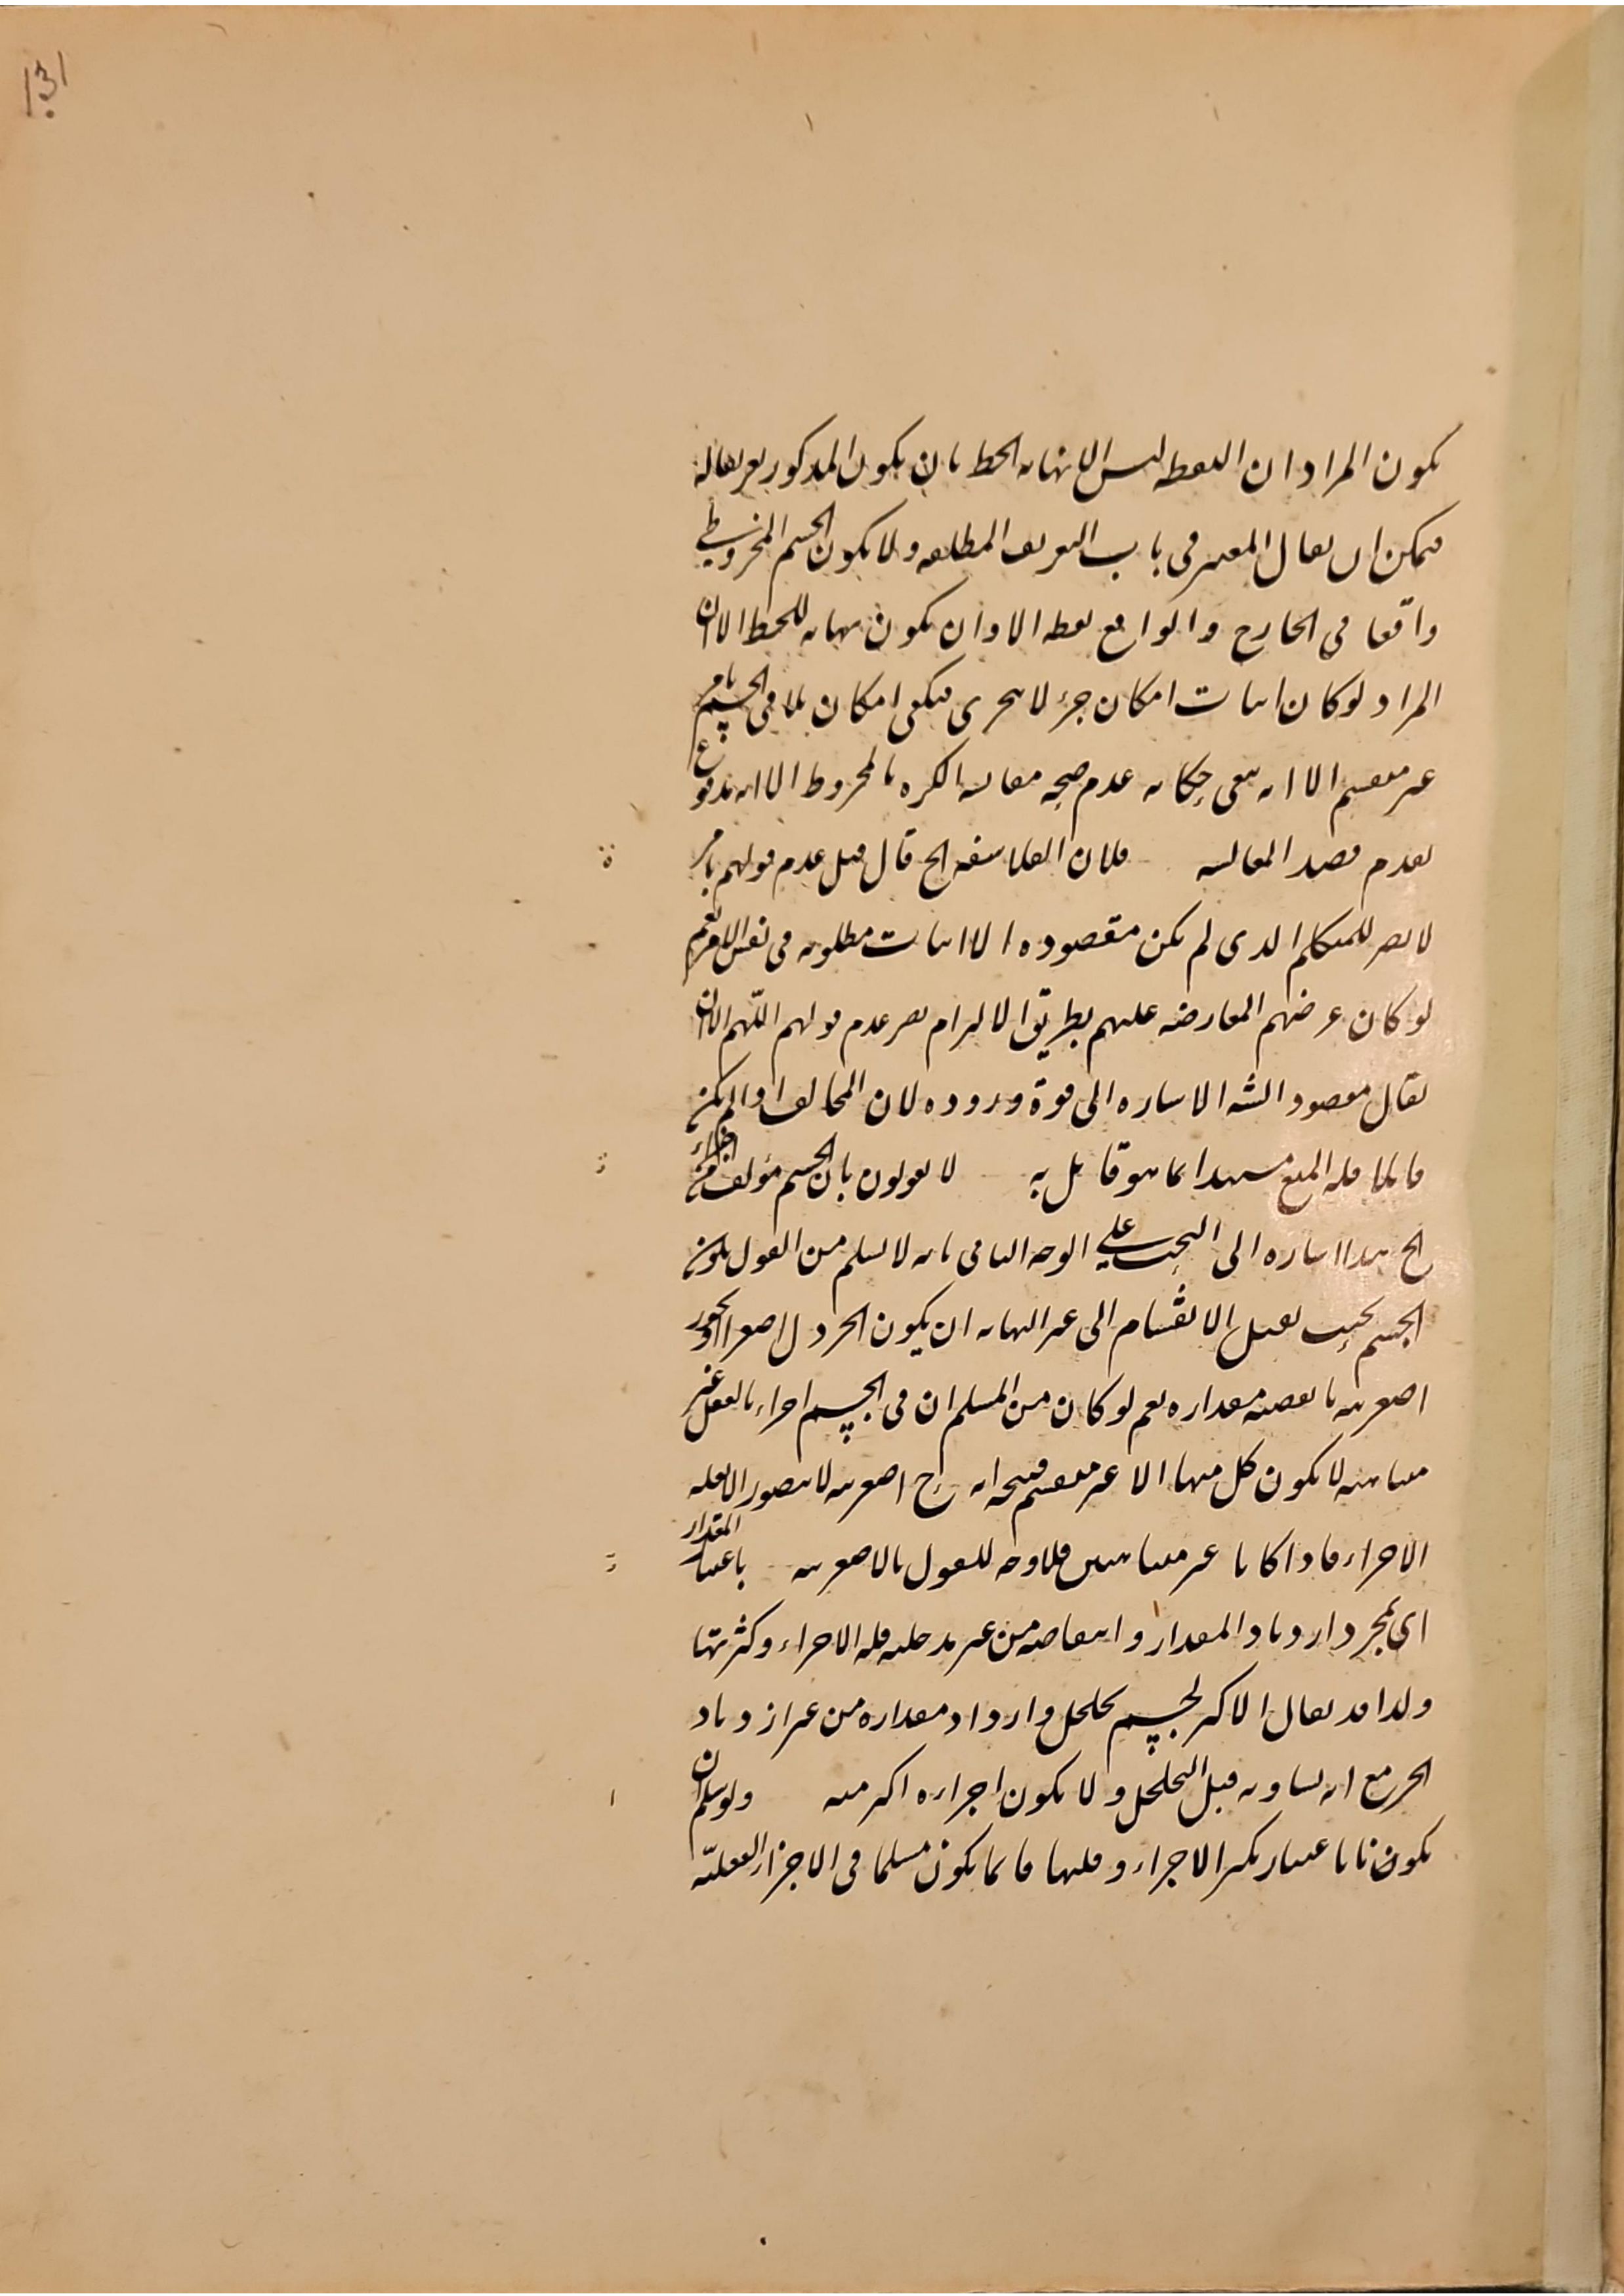 131
يكون المراد ان النقطه ليس الا نهايه الخط بان يكون المذكور تعريفا له
فيمكن ان يقال المعتبر فى باب التعريف المطلقه ولا يكون الجسم المخروطى
واقعا فى الخارج والواقع نقطه الا وان يكون نهايه للخط الا ان
المراد لو كان اثبات امكان جزء لا يتجزى فيكفى امكان تلاقى الجسم بامر
غير منقسم الا انه يبقى حكايه عدم صحه مقايسه الكره بالمخروط الا انه مدفوع
بعدم قصد المقايسه فلان الفلاسفه الخ قال قيل عدم قولهم بامر
لا يضر للمتكلم الذى لم يكن مقصوده الا اثبات مطلوبه فى نفس الامر نعم
لو كان غرضهم المعارضه عليهم بطريق الالزام يضر عدم قولهم اللهم الا ان
يقال مقصود الشه الاشاره الى قوة وروده لان المخالف اذا لم يكن
قائلا فله المنع مستندا بما هو قايل به لا يقولون بان الجسم مؤلف من اجزاء
الخ هذا اشاره الى البحث على الوجه الثانى بانه لا نسلم من القول بكون
الجسم بحيث يقبل الانقسام الى غير النهايه ان يكون الخردل اصغر اذ يجوز
اصغريته بانقصيه مقداره نعم لو كان من المسلم ان فى الجسم اجزاء بالفعل غير
متناهيه لا يكون كل منها الا غير منقسم فيتجه انه ح اصغريته لا يتصور الا بقله
الاجزاء فاذا كانا غير متناهيين فلا وجه للقول بالاصغريه باعتبار المقدار
اى بمجرد ازدياد المقدار وانتقاصه من غير مدخليه قله الاجزاء وكثرتها
ولذا قد يقال الاكبر لجسم تخلخل وازداد مقداره من غير ازدياد
الجزء مع انه يساويه قبل التخلخل ولا يكون اجزاءه اكثر منه ولو سلم ان
يكون ذا باعتبار تكثر الاجزاء وقلتها فانما يكون مسلما فى الاجزاء الفعليّه